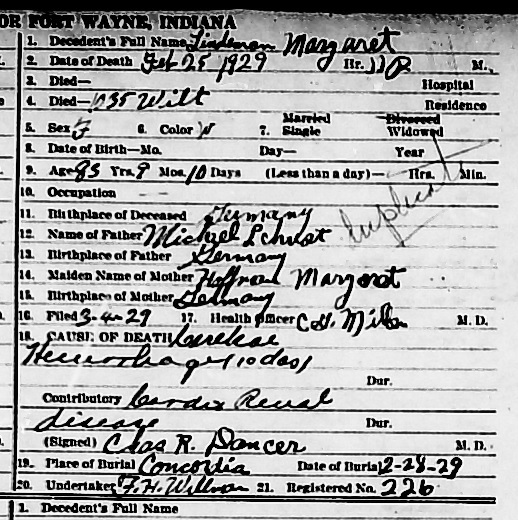 OR FORT WAYNE, INDIANA
1. Decedent's Full Name Lindeman Margaret
2. Date of Death Feb 25 1929 Hr. 11 P. M.
3. Died— Hospital
4. Died—1035 Wilt Residence
5. Sex F 6. Color W 7. Married Single Divorced Widowed
8. Date of Birth—Mo. Day— Year
9. Age 85 Yrs. 9 Mos. 10 Days (Less than a day)— Hrs. Min.
10. Occupation
11. Birthplace of Deceased Germany
12. Name of Father Michael
13. Birthplace of Father Germany
14. Maiden Name of Mother Hoffman Margaret
15. Birthplace of Mother Germany
16. Filed 3-4-29 17. Health Officer C. H. M. D.
18. CAUSE OF DEATH
Hemorrhage (10 days)
Dur.
Contributory Cardio Renal
disease Dur.
(Signed) Chas R. Dancer M. D.
19. Place of Burial Concordia Date of Burial 2-28-29
20. Undertaker F. H. 21. Registered No. 226
1. Decedent's Full Name
Duplicate